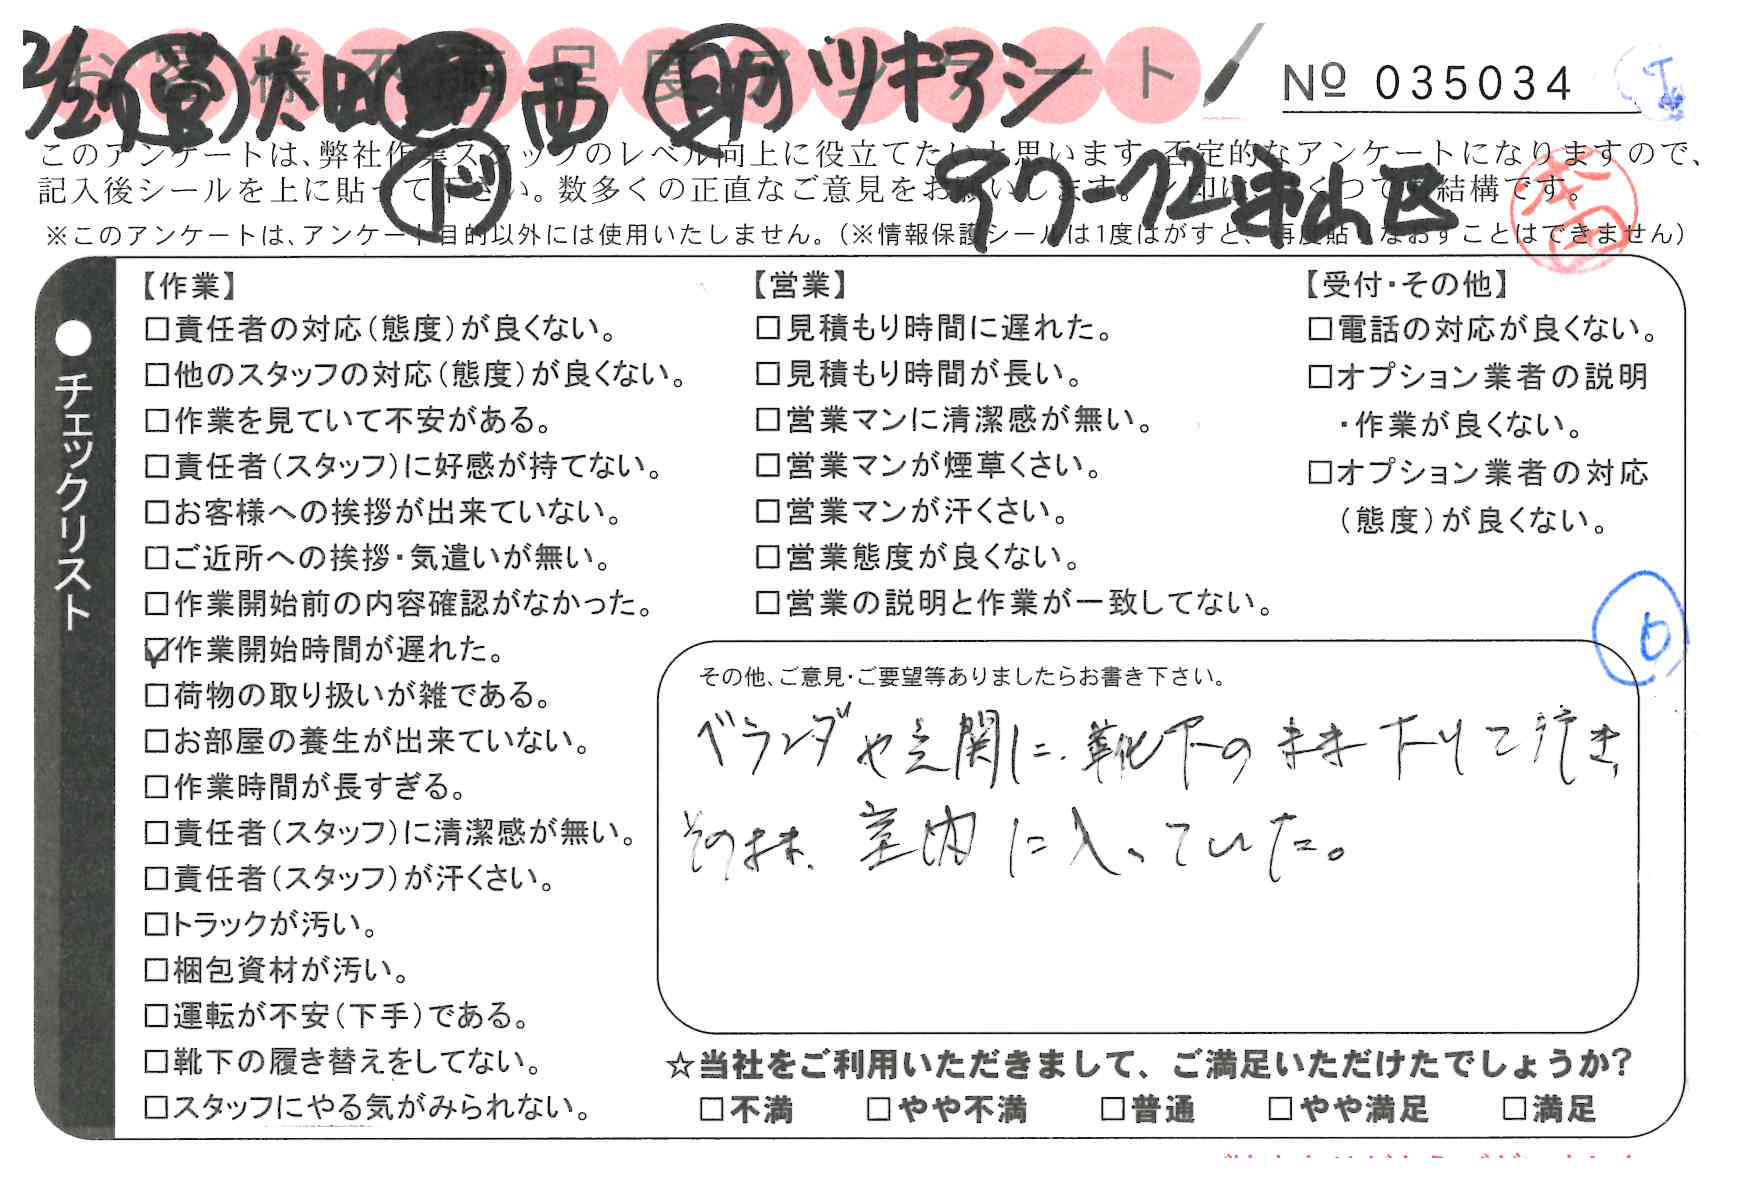 お客様不満足度アンケート
太田 西 助 ツキアシ
№ 035034
このアンケートは、弊社作業スタッフのレベル向上に役立てたいと思います。否定的なアンケートになりますので、
記入後シールを上に貼って下さい。数多くの正直なご意見をお願いします。
※このアンケートは、アンケート目的以外には使用いたしません。（※情報保護シールは1度はがすと、再度貼りなおすことはできません）
●チェックリスト
【作業】
□責任者の対応（態度）が良くない。
□他のスタッフの対応（態度）が良くない。
□作業を見ていて不安がある。
□責任者（スタッフ）に好感が持てない。
□お客様への挨拶が出来ていない。
□ご近所への挨拶・気遣いが無い。
□作業開始前の内容確認がなかった。
☑作業開始時間が遅れた。
□荷物の取り扱いが雑である。
□お部屋の養生が出来ていない。
□作業時間が長すぎる。
□責任者（スタッフ）に清潔感が無い。
□責任者（スタッフ）が汗くさい。
□トラックが汚い。
□梱包資材が汚い。
□運転が不安（下手）である。
□靴下の履き替えをしてない。
□スタッフにやる気がみられない。
【営業】
□見積もり時間に遅れた。
□見積もり時間が長い。
□営業マンに清潔感が無い。
□営業マンが煙草くさい。
□営業マンが汗くさい。
□営業態度が良くない。
□営業の説明と作業が一致してない。
【受付・その他】
□電話の対応が良くない。
□オプション業者の説明
・作業が良くない。
□オプション業者の対応
（態度）が良くない。
その他、ご意見・ご要望等ありましたらお書き下さい。
ベランダや玄関に、靴下のまま下りて行き
そのまま、室内に入っていた。
☆当社をご利用いただきまして、ご満足いただけたでしょうか？
□不満 □やや不満 □普通 □やや満足 □満足